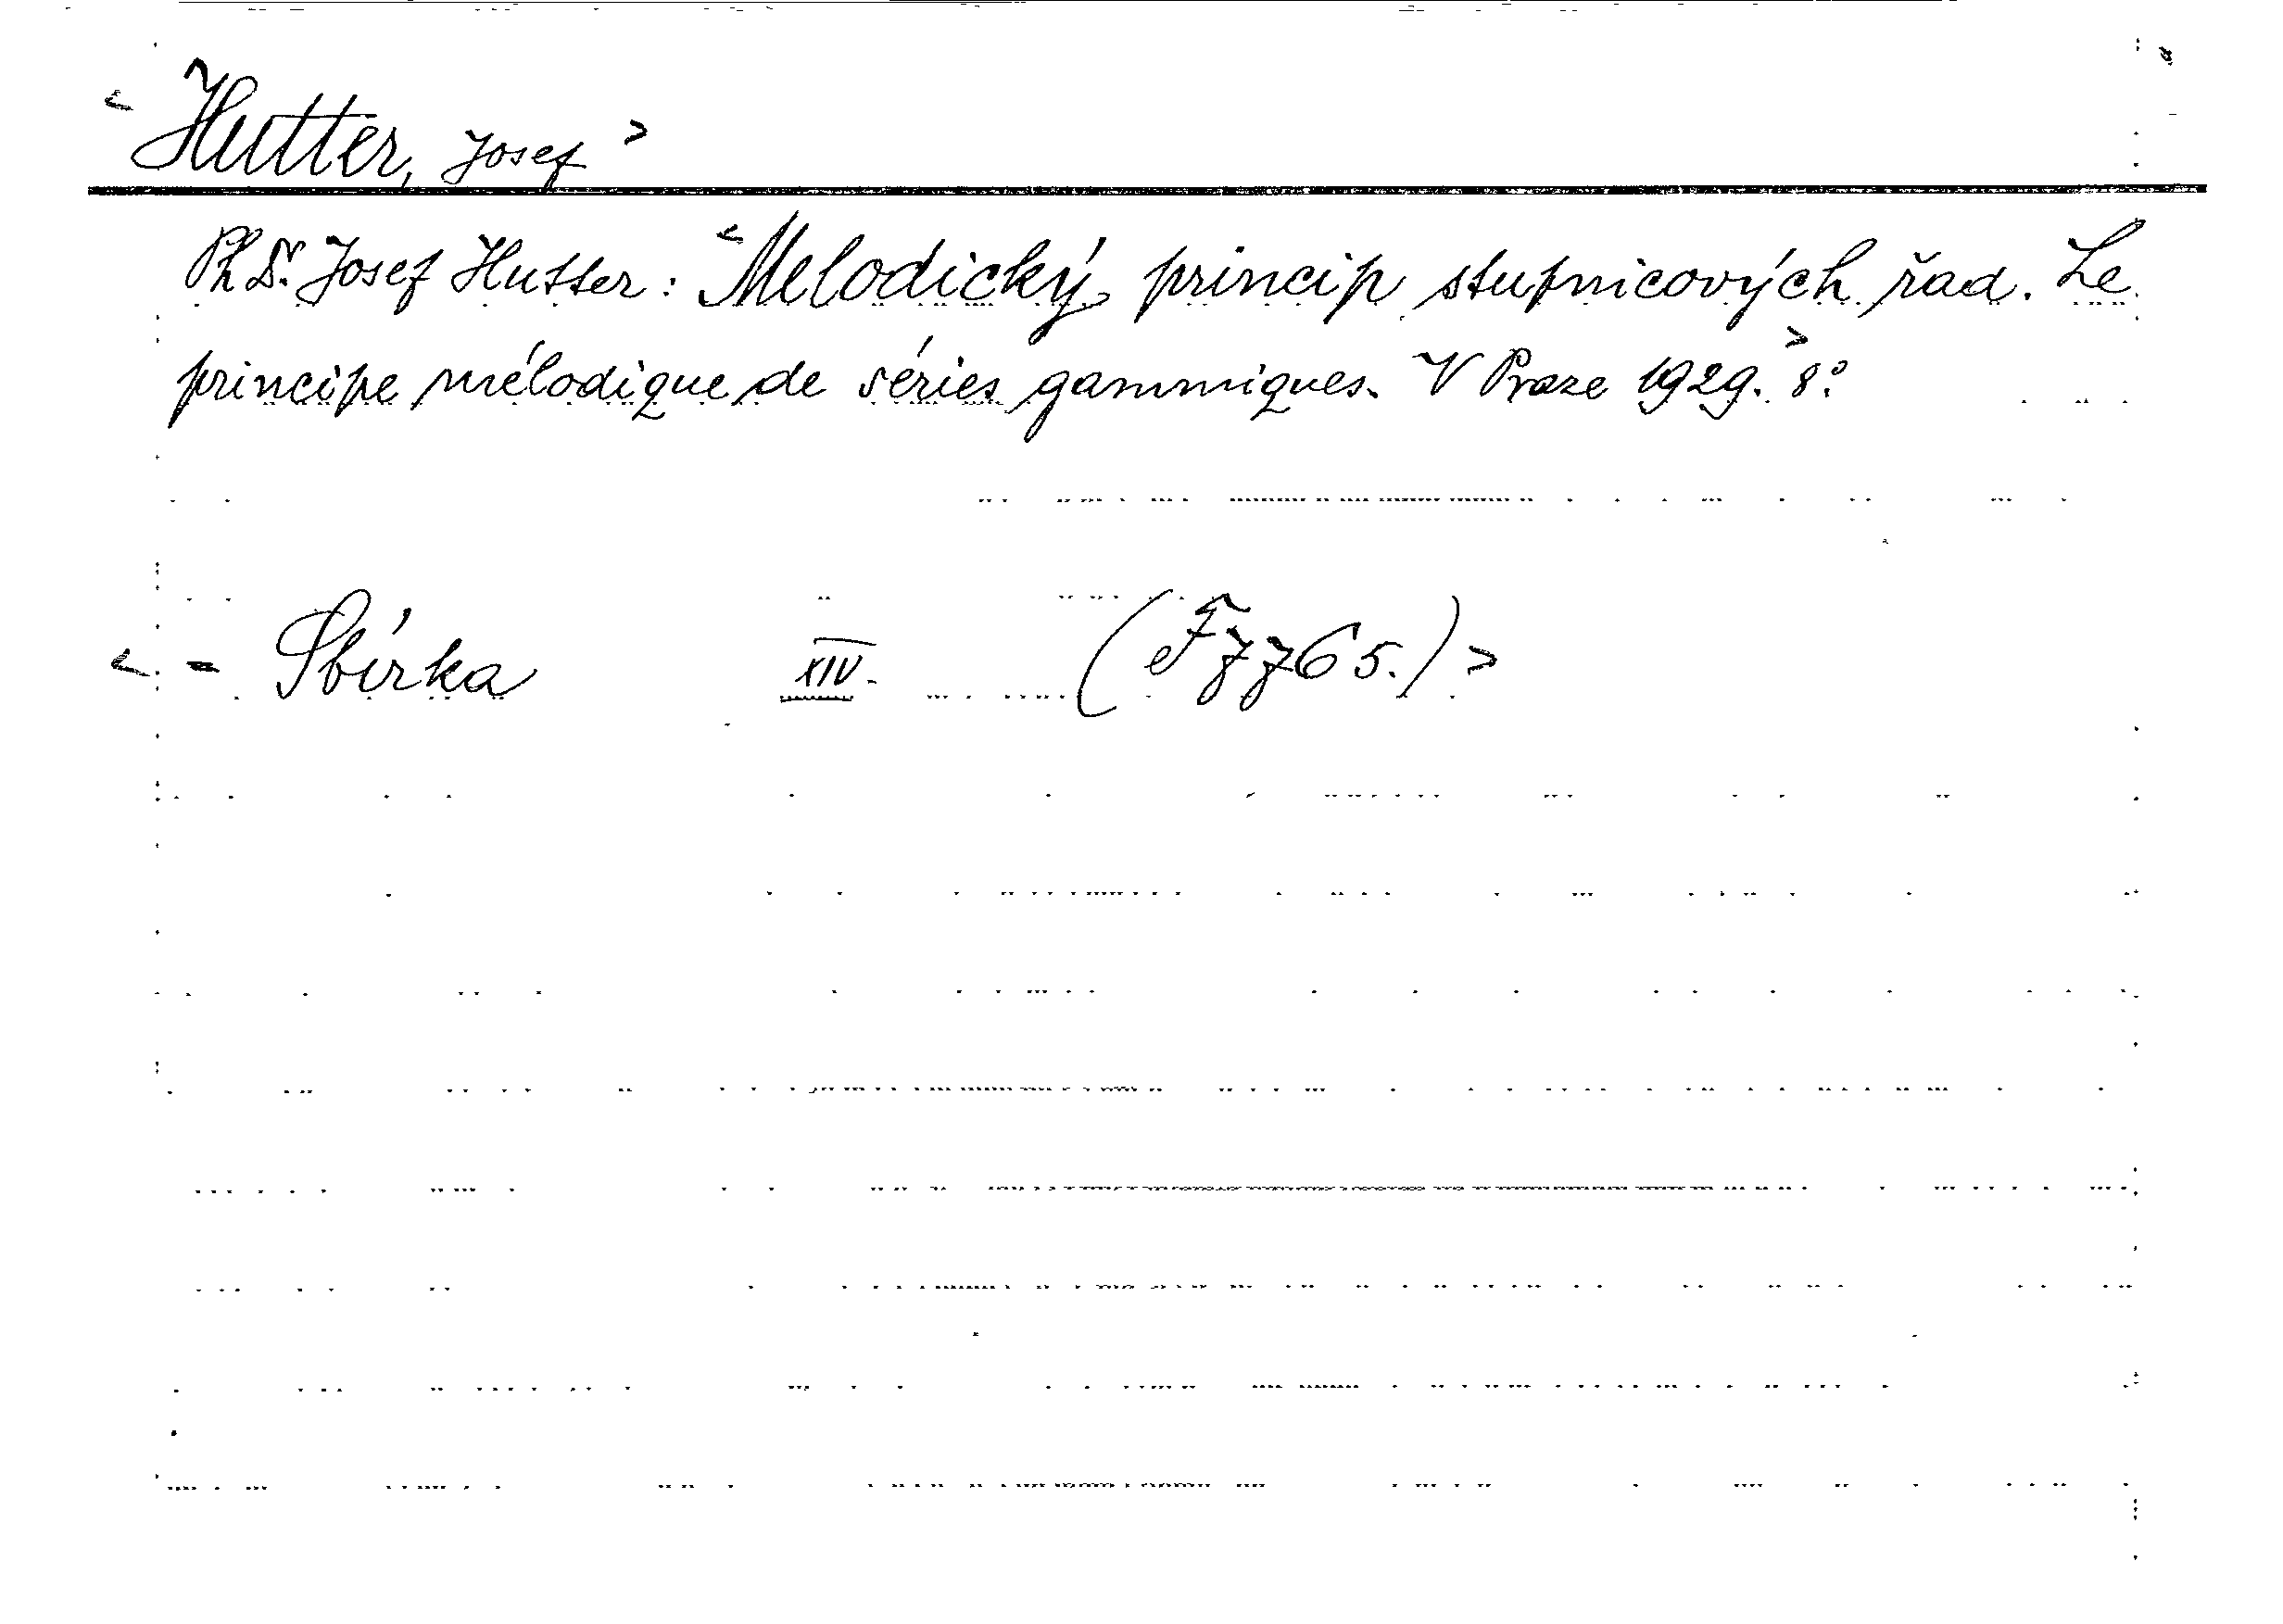 < Hutter, Josef >
PhDr. Josef Hutter: < Melodický princip stupnicových řad. Le
principe mélodique de séries gammiques. V Praze 1929. > 8.°
< - Sbírka XIV. (F 7765.) >